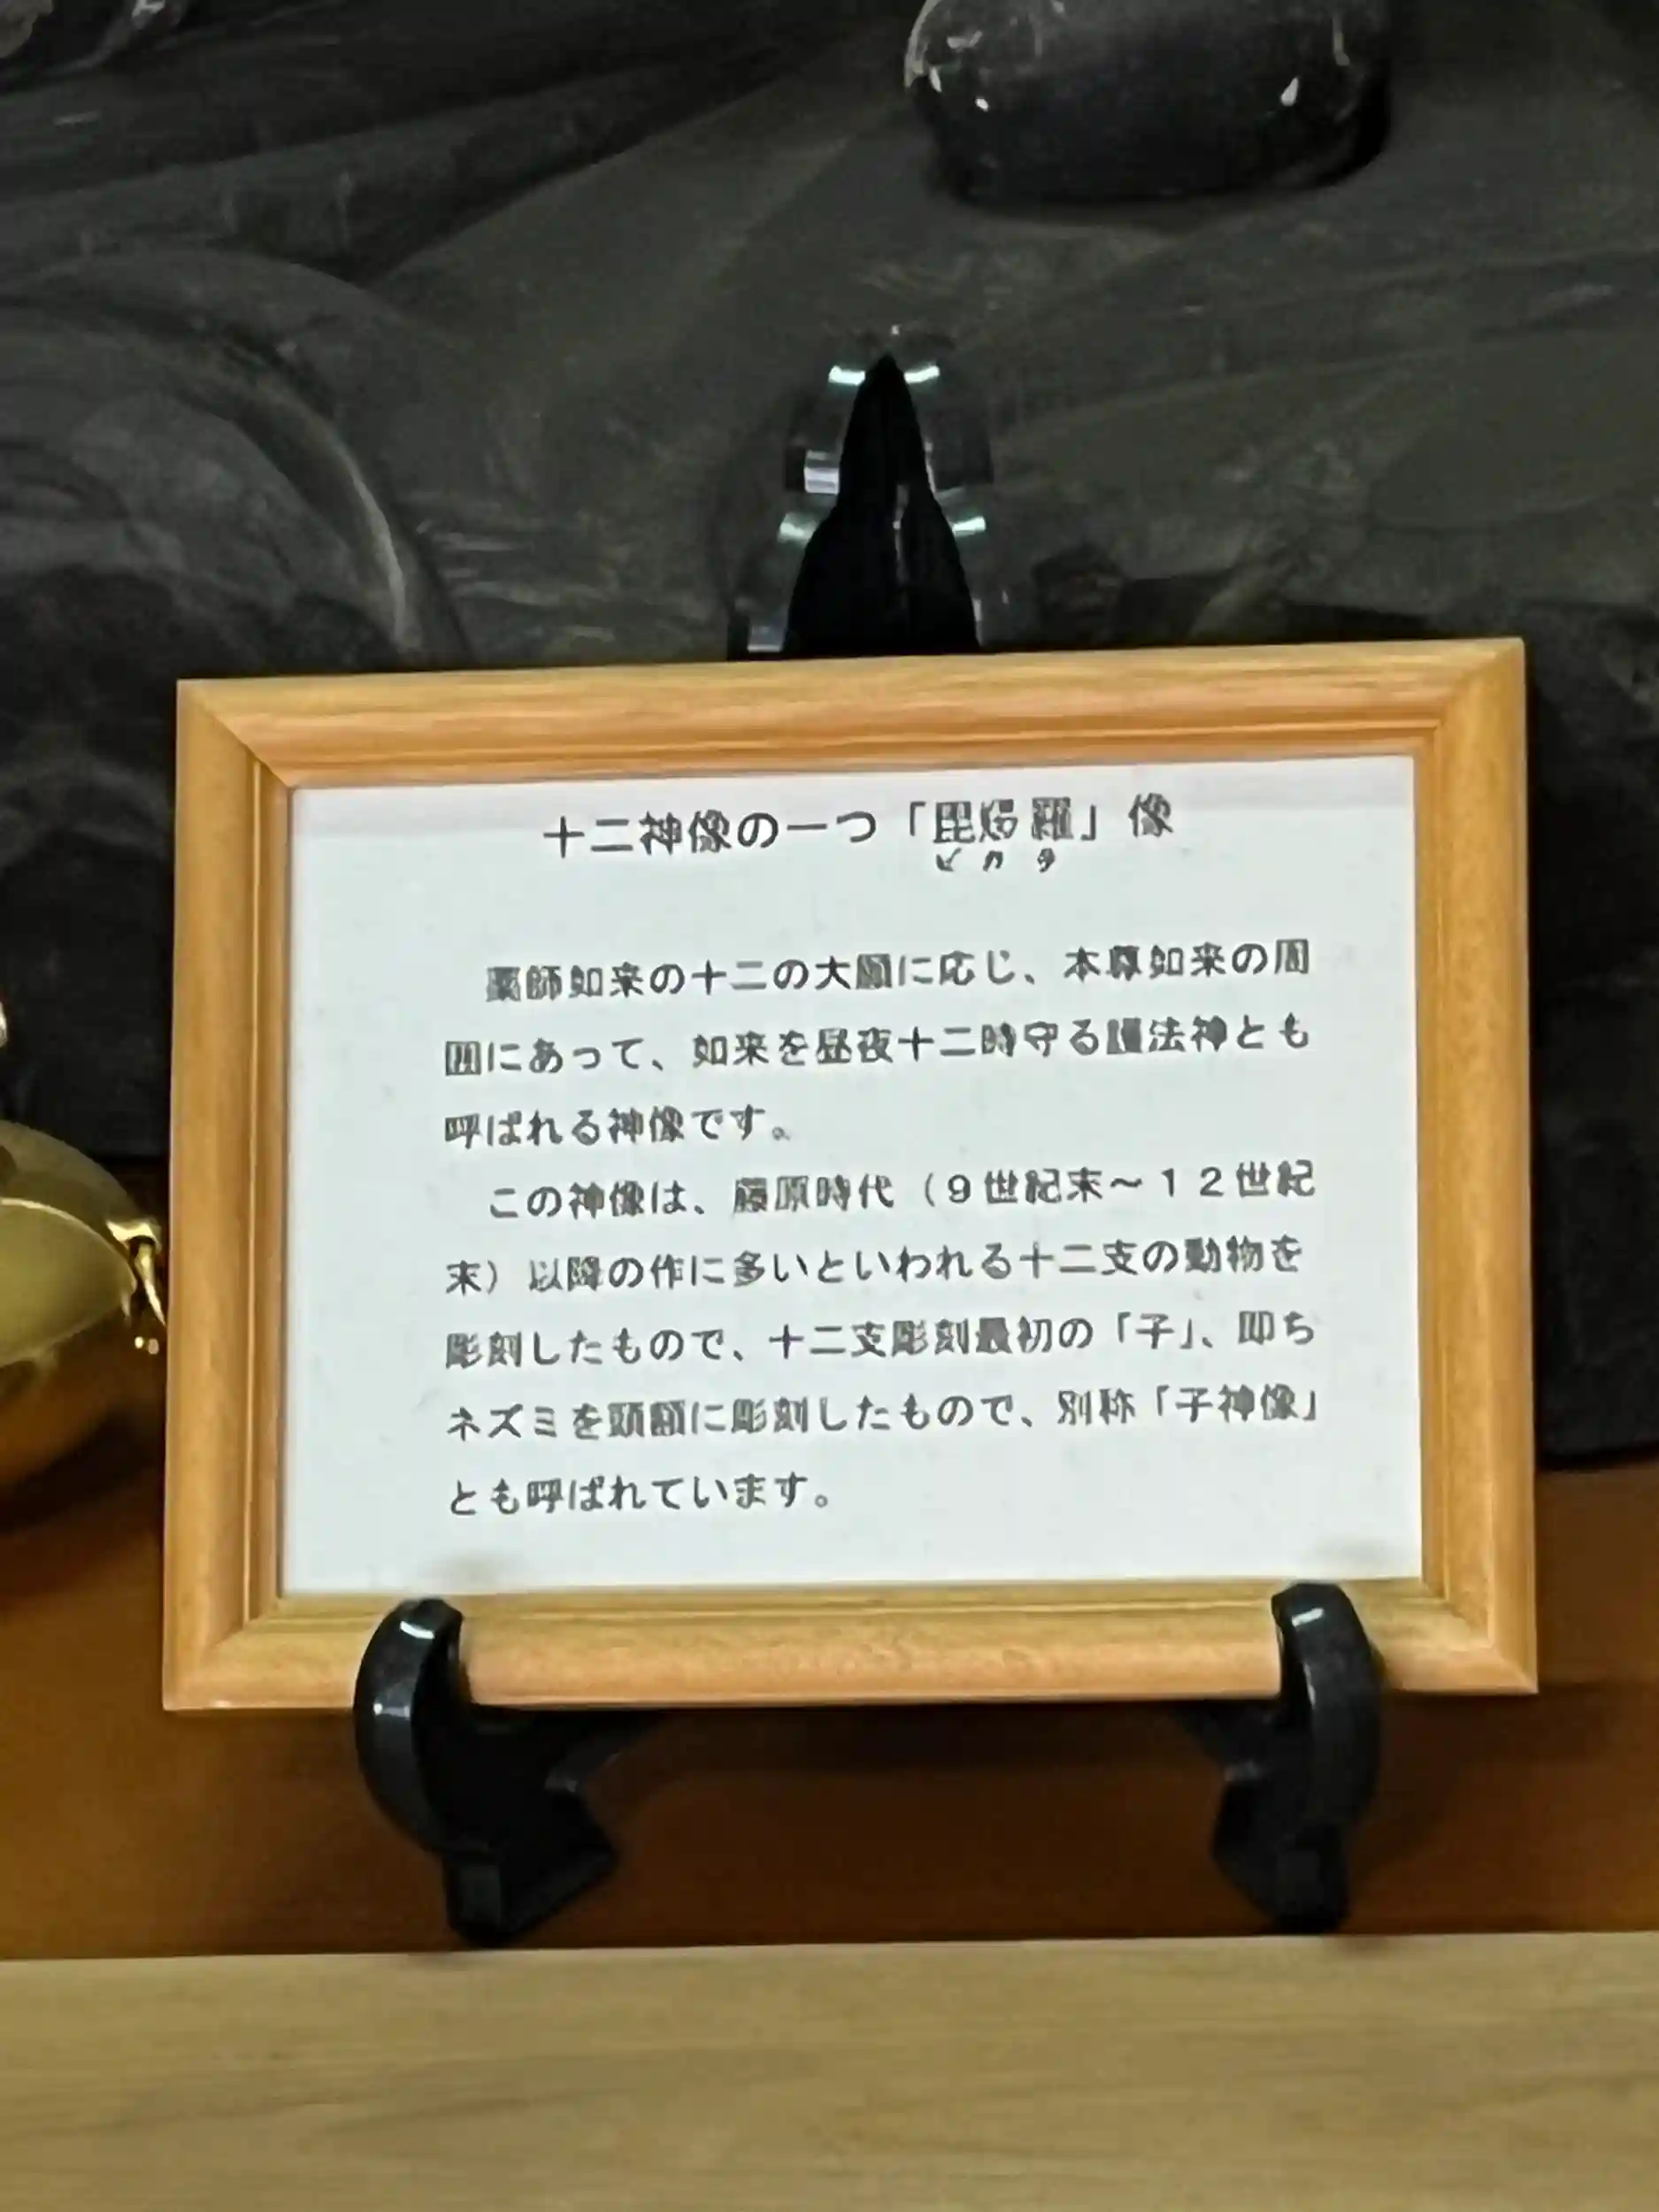 十二神像の一つ「毘羯羅」像
ビカラ
薬師如来の十二の大願に応じ、本尊如来の周
囲にあって、如来を昼夜十二時守る護法神とも
呼ばれる神像です。
この神像は、藤原時代（9世紀末～12世紀
末）以降の作に多いといわれる十二支の動物を
彫刻したもので、十二支彫刻最初の「子」、即ち
ネズミを頭額に彫刻したもので、別称「子神像」
とも呼ばれています。